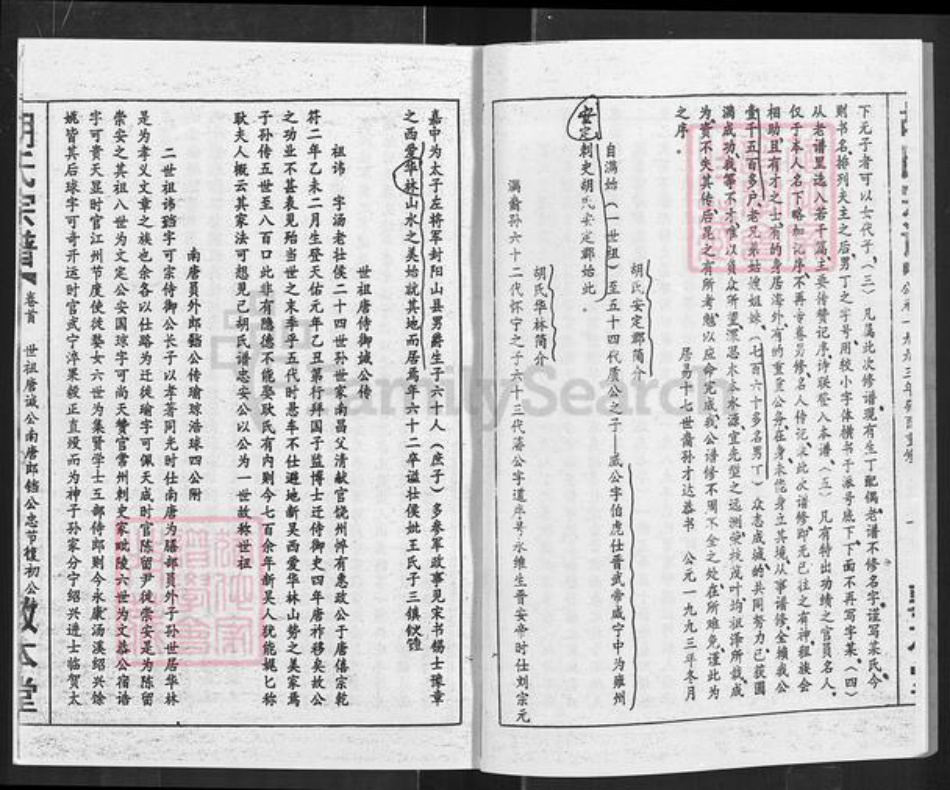 下元子者可以女代子、(三)凡属此次修谱现有生丁配偶、老谱不修名字谨写某氏、今
则书名、搭列夫主之后、男丁之字号用较小字体横书于派号底下、下面不再写字某、(四)
从老谱里选入若干篇、主要传赞记序诗联登入本谱、(五)凡有特出功绩之官员名人、
仅于本人名下略加记序、不再专卷另修名人传记、
相助且有才之士有的身居海外有的重重公务在身未能身立其境从事谱修、
壹千五百多户、老兄弟姑嫂姐妹、(七百六十多名男丁)众志成城的共同努力已获圆
满成功、我等不才、难以负众所望、深思木本水源宜先型之远溯、荣枝茂叶均祖泽所栽成
为贵不失其传、后昆之有所考、勉以应命完成、我公谱修不周不全之处、在所难免、谨此为
之序。
居易十七世裔孙才达恭书 公元一九九三年冬月
胡氏安定郡简介
自满始(一世祖)至五十四代质公之子——威公字伯虎仕晋武帝咸宁中为雍州
安定刺史胡氏安定郡始此。
胡氏华林简介
满裔孙六十二代怀宁之子六十三代藩公字道序号永维生晋安帝时仕刘宗元
嘉中为太子左将军封阳山县男爵生子六十人(庶子)多参军政事见宋书锡士豫章
之西爱华林山水之美始就其地而居焉年六十二卒谥壮侯妣王氏子三镇
世祖唐侍御诚公传
祖讳 字汤老壮侯二十四世孙世家南昌父清献官饶州倅有惠政公于唐僖宗乾
符二年乙未二月生登天佑元年乙丑第行拜国子监博士迁侍御史四年唐祚移矣故公
之功业不甚表见殆当世之末季乎五代时悉牟不仕避地新吴西爱华林山势之美家焉
子孙传五世至八百口此非有隐德不能娶耿氏有内则今七百余年新吴人犹能妮匕称
耿夫人概云其家法可想见己胡氏谱忠安公以公为一世故称世祖
南唐员外郎铛公传瑜琼浩球四公附
二世祖讳珰字可宗侍御公长子以孝著同光时仕南唐为膳部员外子孙世居华林
是为孝义文章之族也余各以仕路为迁徙瑜字可佩天成时官陈留尹徙崇安是为陈留
崇安之其祖八世为文定公安国琼字可尚天赞官常州刺史家毗陵六世为文恭公宿诰
字可贵天显时官江州节度使徙婺女六世为集贤学士五部侍郎则今永康汤溪绍兴馀
姚皆其后球字可奇开运时官武宁淬果毅正直殁而为神子孙家分宁绍兴进士临贺太
胡氏宗谱 卷首 世祖唐诚公南唐郎铛公忠节複初公 敦本堂
FamilySearch